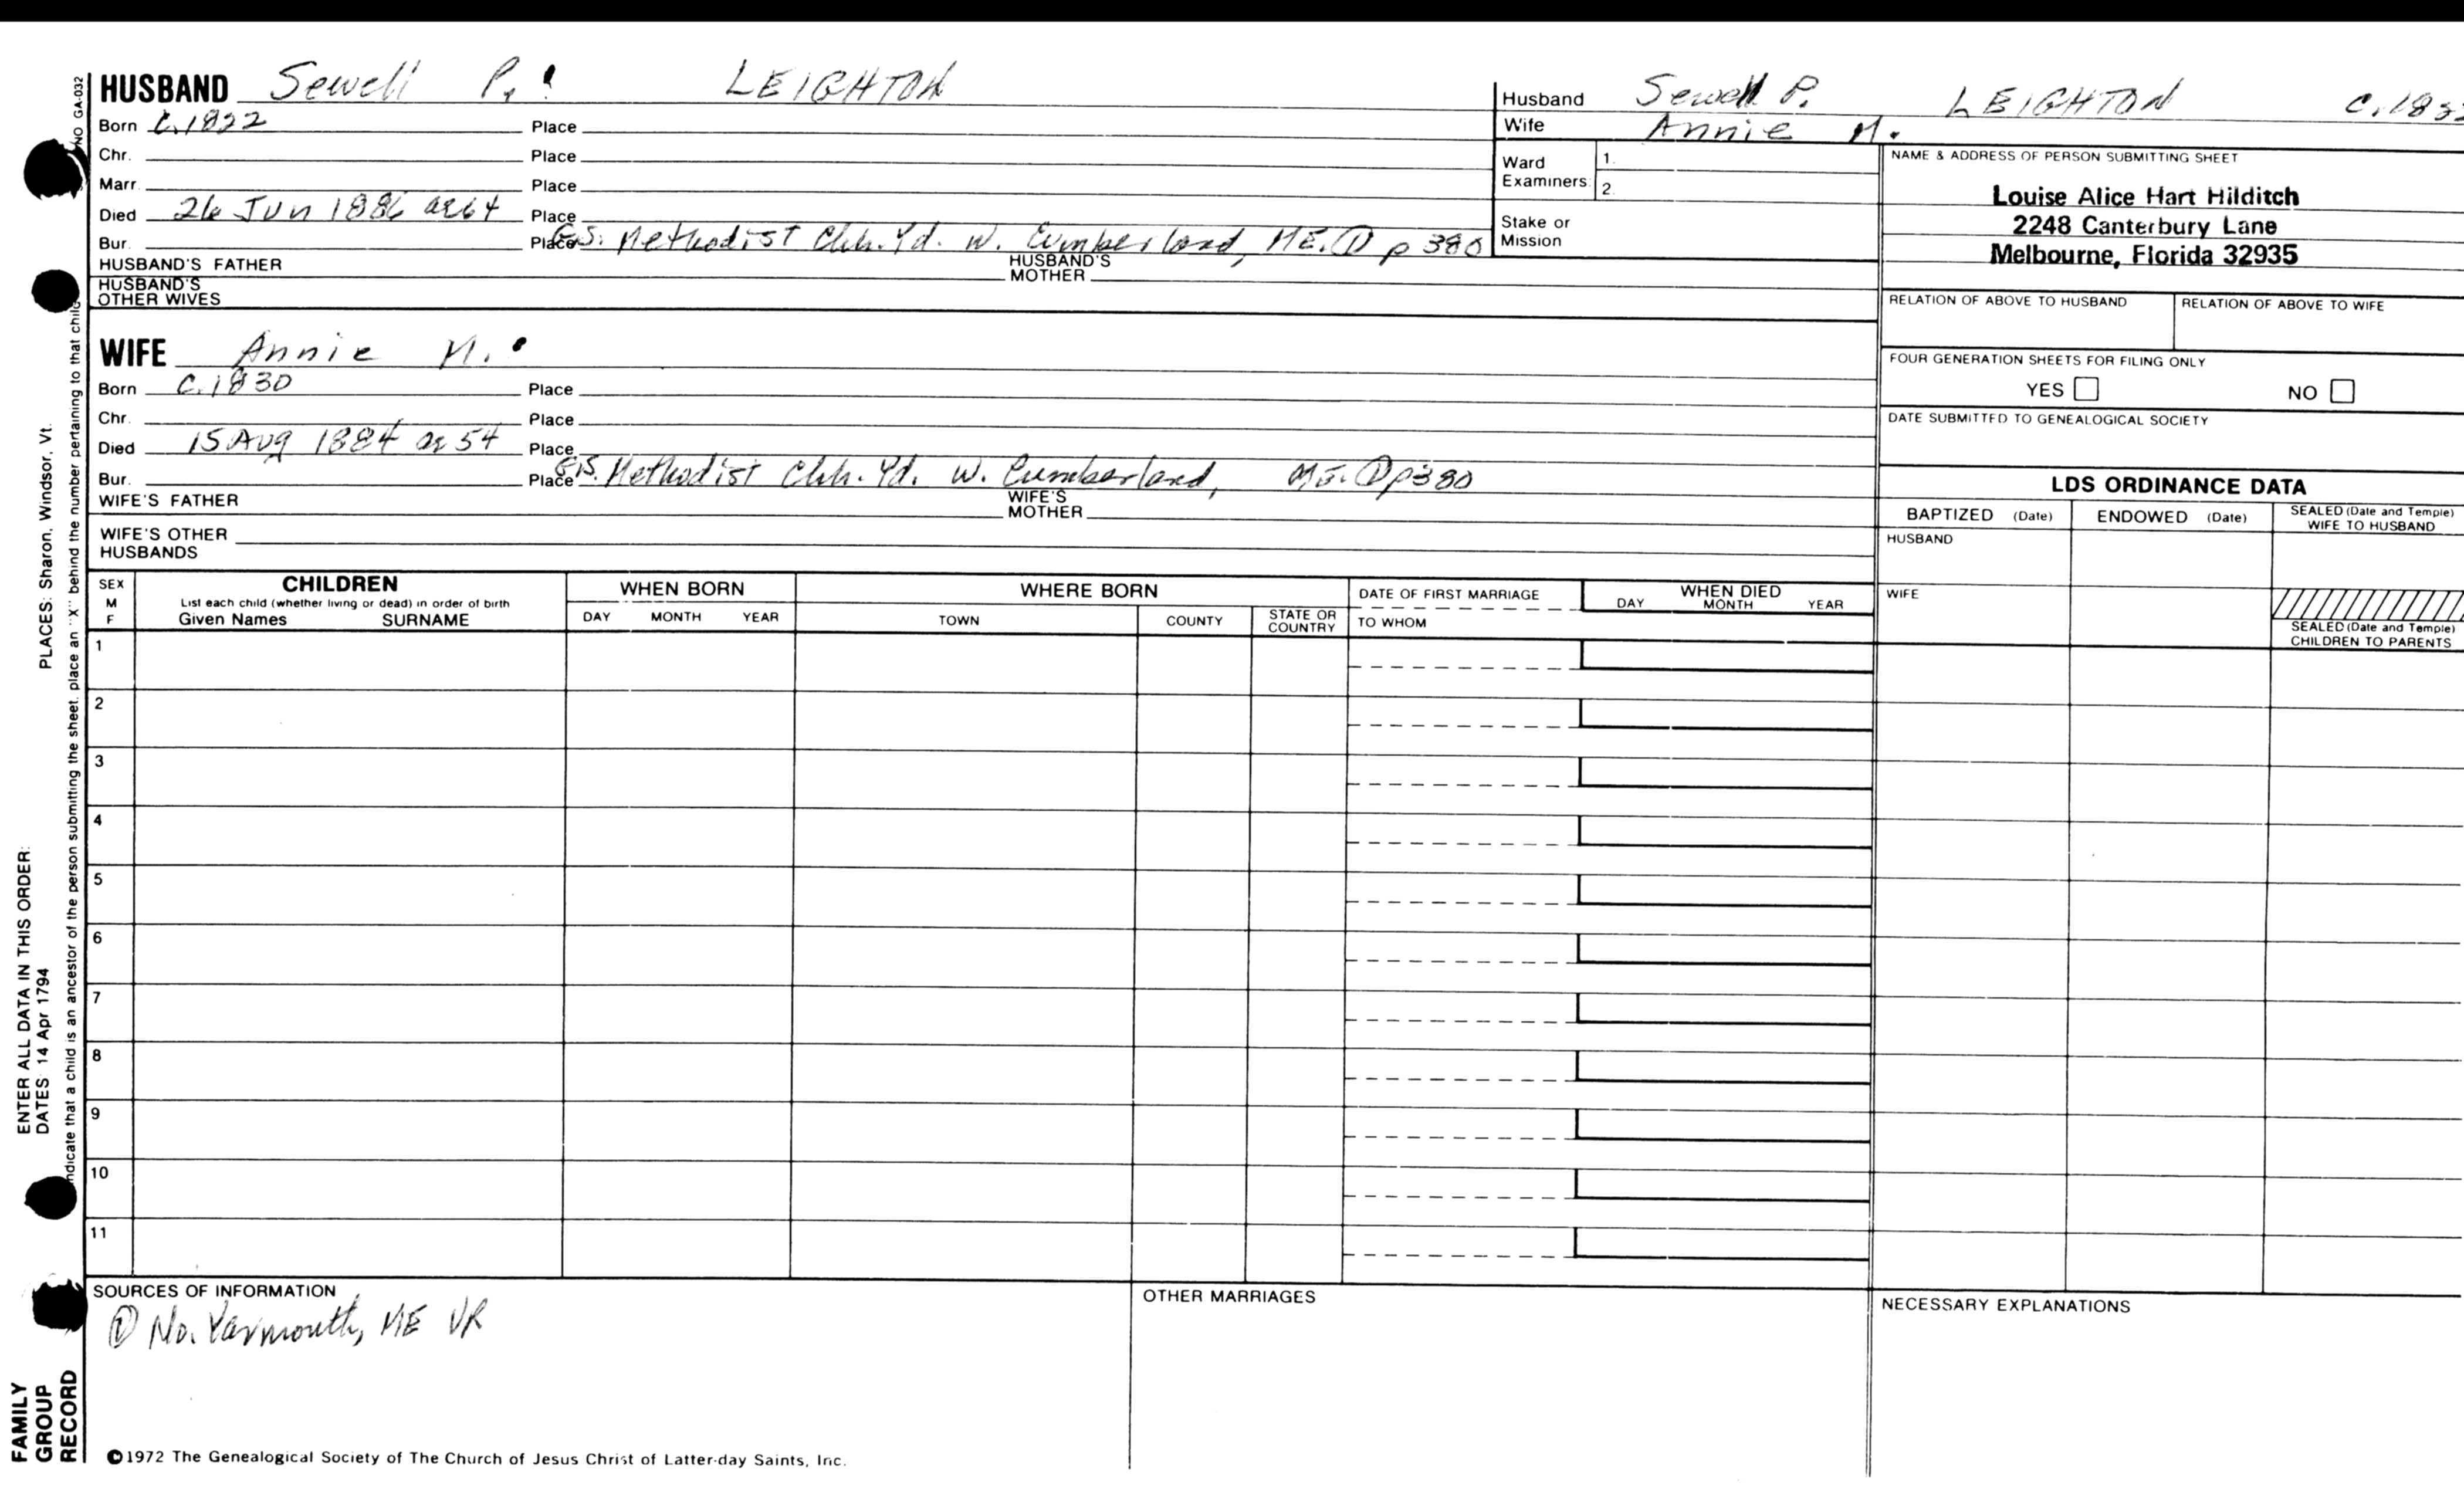 HUSBAND Sewell P. LEIGHTON
Born c.1822 Place
Chr. Place
Marr. Place
Died 26 Jun 1886 ae 64 Place
Bur. Place G.S. Methodist Chh. Yd. W. Cumberland, ME. ① p 380
HUSBAND'S FATHER HUSBAND'S MOTHER
HUSBAND'S OTHER WIVES
WIFE Annie M.
Born c.1830 Place
Chr. Place
Died 15 Aug 1884 ae 54 Place
Bur. Place G.S. Methodist Chh. Yd. W. Cumberland, ME. ① p380
WIFE'S FATHER WIFE'S MOTHER
WIFE'S OTHER HUSBANDS
Husband Sewell P. LEIGHTON
Wife Annie M.
Ward Examiners 1.
2.
Stake or Mission
NAME & ADDRESS OF PERSON SUBMITTING SHEET
Louise Alice Hart Hilditch
2248 Canterbury Lane
Melbourne, Florida 32935
RELATION OF ABOVE TO HUSBAND RELATION OF ABOVE TO WIFE
FOUR GENERATION SHEETS FOR FILING ONLY
YES NO
DATE SUBMITTED TO GENEALOGICAL SOCIETY
LDS ORDINANCE DATA
BAPTIZED (Date) ENDOWED (Date) SEALED (Date and Temple) WIFE TO HUSBAND
HUSBAND
WIFE
SEALED (Date and Temple) CHILDREN TO PARENTS
SEX M F
CHILDREN
List each child (whether living or dead) in order of birth
Given Names SURNAME
WHEN BORN
DAY MONTH YEAR
WHERE BORN
TOWN COUNTY STATE OR COUNTRY
DATE OF FIRST MARRIAGE
TO WHOM
WHEN DIED
DAY MONTH YEAR
1
2
3
4
5
6
7
8
9
10
11
SOURCES OF INFORMATION
① No. Yarmouth, ME VR
OTHER MARRIAGES
NECESSARY EXPLANATIONS
©1972 The Genealogical Society of The Church of Jesus Christ of Latter-day Saints, Inc.
FAMILY
GROUP
RECORD
ENTER ALL DATA IN THIS ORDER:
DATES 14 Apr 1794 PLACES: Sharon, Windsor, Vt.
indicate that a child is an ancestor of the person submitting the sheet, place an "X" behind the number pertaining to that child
NO GA-032